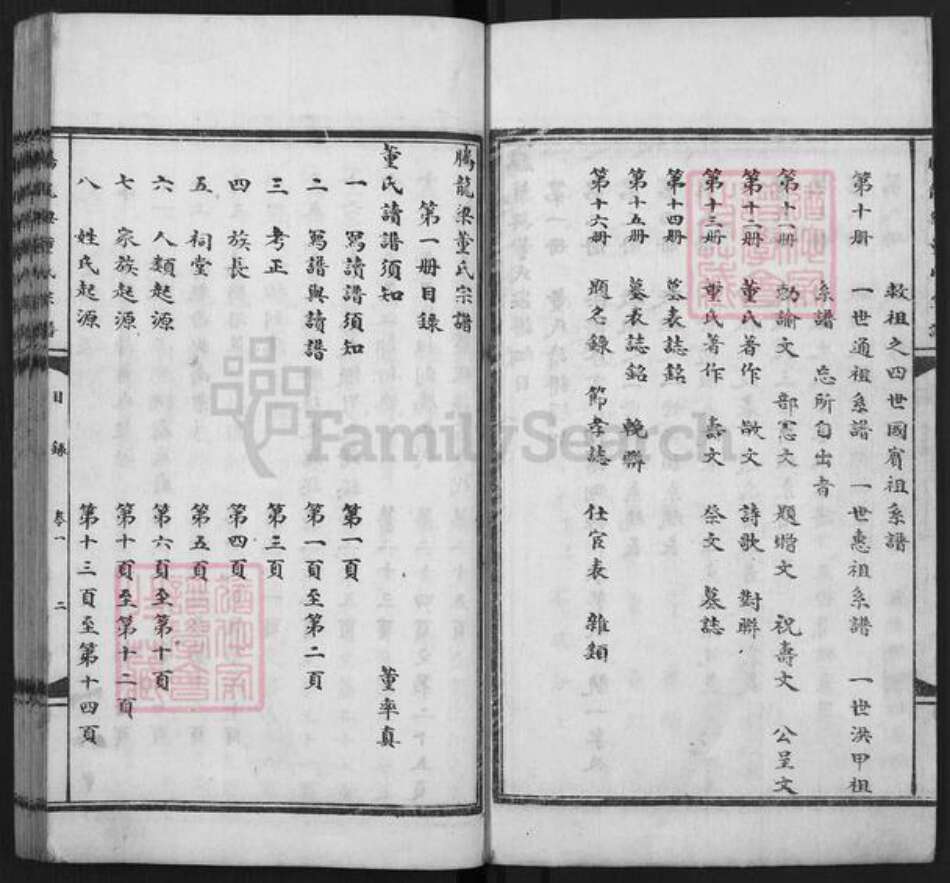 敖祖之四世國賓祖系譜
第十册 一世通祖系譜 一世惠祖系譜 一世洪甲祖
系譜 忘所自出者
第十一册 勅諭文 部憲文 題贈文 祝壽文 公呈文
第十二册 董氏著作 敘文 詩歌 對聯
第十三册 董氏著作 壽文 祭文 墓誌
第十四册 墓表誌銘
第十五册 墓表誌銘 輓聯
第十六册 題名錄 節孝誌 仕宦表 雜類
騰龍梁董氏宗譜
第一册目錄
董氏讀譜須知 董率真
一 寫讀譜須知 第一頁
二 寫譜與讀譜 第一頁至第二頁
三 考正 第三頁
四 族長 第四頁
五 祠堂 第五頁
六 人類起源 第六頁至第十頁
七 家族起源 第十頁至第十二頁
八 姓氏起源 第十三頁至第十四頁
目錄 卷一 二
FamilySearch